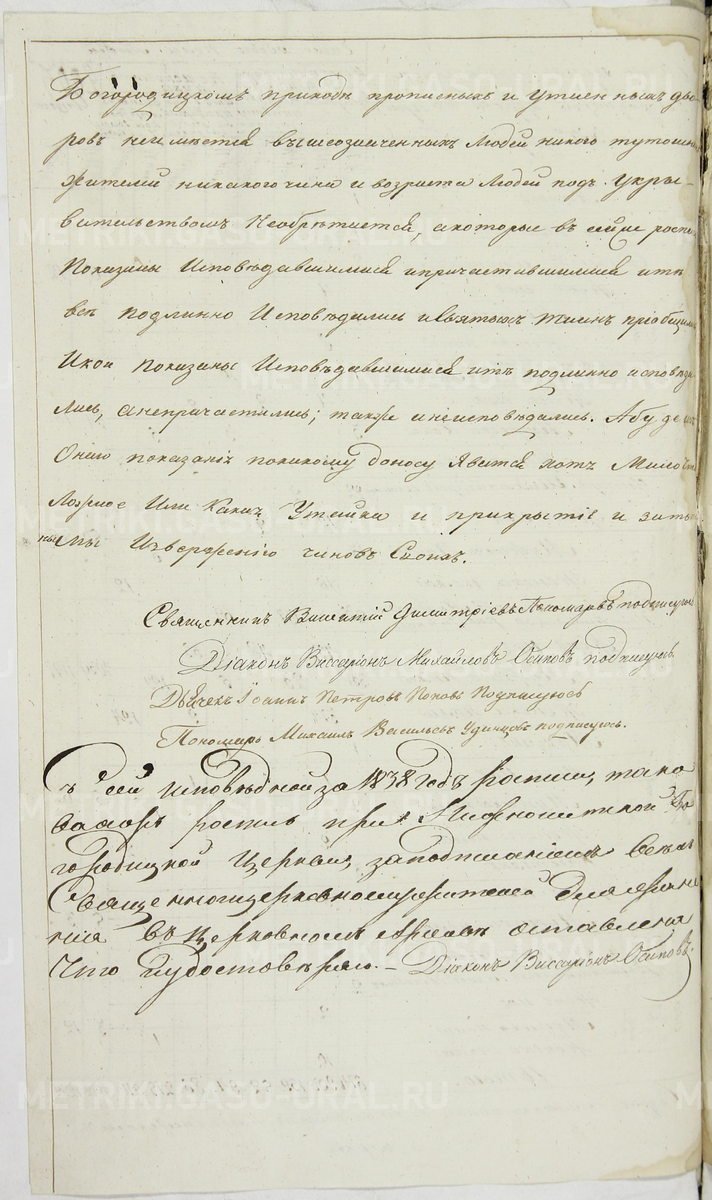 Богородицкомъ приходѣ прописныхъ и утаенныхъ дво
ровъ неимѣется вышеозначенныхъ людей никого тутошн
жителей никакого чина и возраста людей подъ укры-
вательствомъ необрѣтается, а которые въ сей роспи
Показаны Исповѣдавшимися и причастившимися и тѣ
всѣ подлинно Исповѣдались и Святыхъ Таинъ пріобщил
И кои показаны Исповѣдавшимися и тѣ подлинно исповѣда
лись, а непричастились; также и неисповѣдались. А буде въ
Ономъ показаніи по какому доносу явится хотя мало что
Ложное Или какая утайка и прикрытіе и за то
мы Изверженію чиновъ Своихъ.
Священникъ Викентій Димитріевъ Пономаревъ подписуюсь
Діаконъ Виссаріонъ Михайловъ Осиповъ подписуюсь
Дьячекъ Іоаннъ Петровъ Поповъ Подписуюсь
Пономарь Михаилъ Васильевъ Удинцовъ подписуюсь.
Съ сей исповѣдной за 1838 годъ росписи, тако
вая жъ роспись при Бо
городицкой Церкви, за подписаніемъ всѣхъ
Священноицерковнослужителей для хране
нія въ Церковномъ Архивѣ оставлена
Что и удостовѣряю. - Діаконъ Виссаріонъ Осиповъ.
METRIKI.GASO-URAL.RU